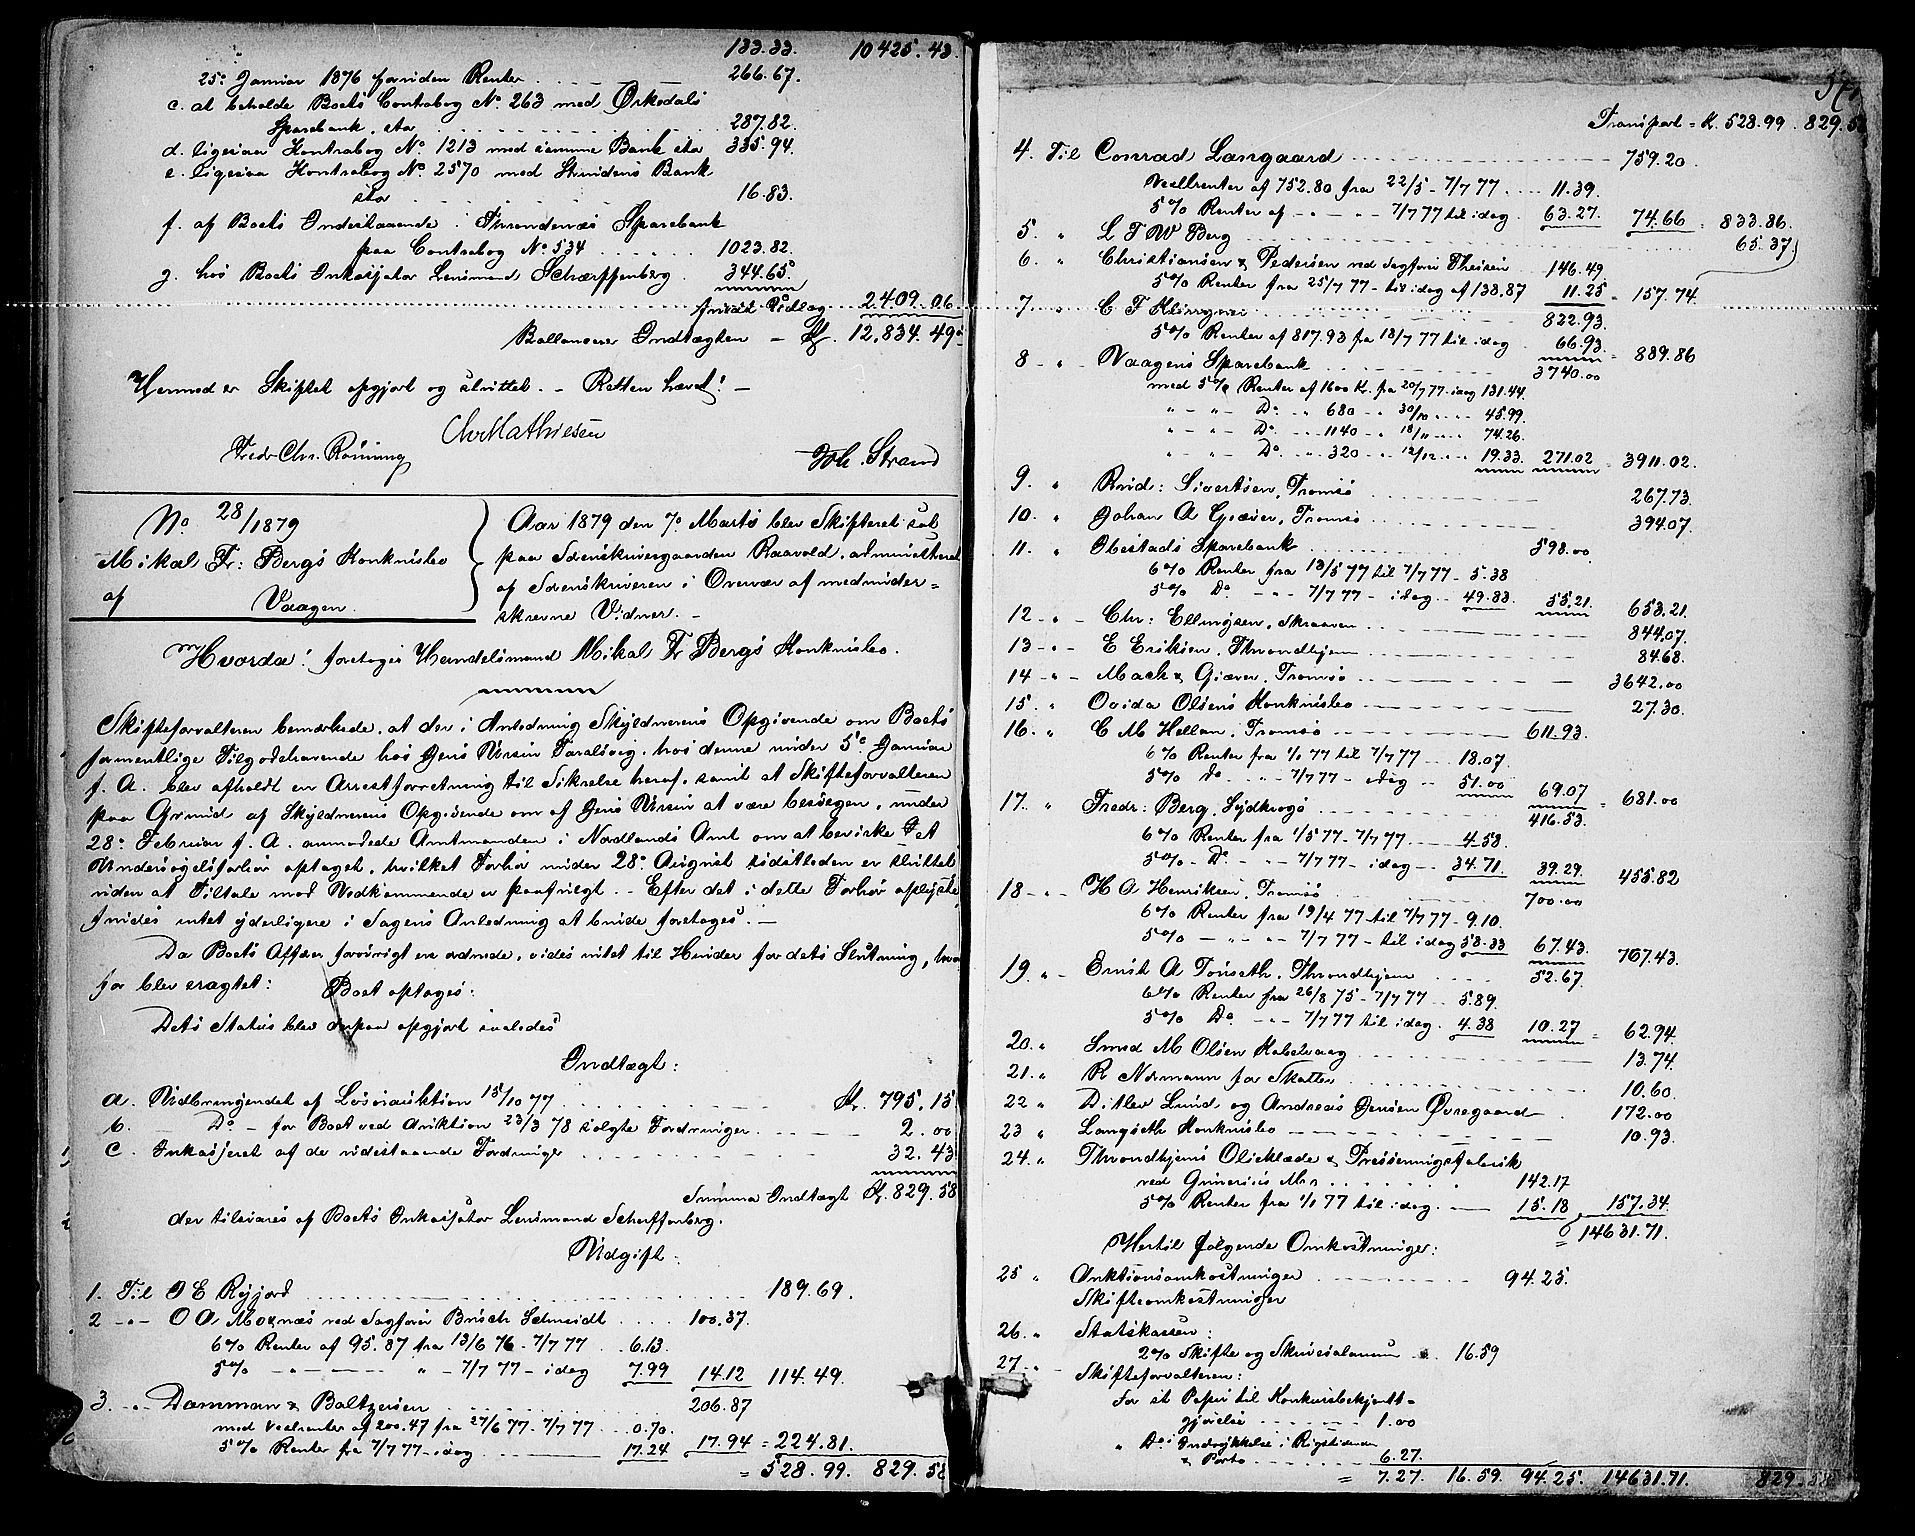 133.33. 10425.43.
25de Januar 1876 foruden Renter 266.67.
c. at beholde Boets Contrabog No. 263 med Ørkedals
Sparebank, stor 287.82.
d. ligesaa Kontrabog No. 1213 med samme Bank stor 335.94.
e. ligesaa Kontrabog No. 2570 med Strindens Bank
stor 16.83.
f. af Boets Indestaaende i Throndenæs Sparebank
paa Contrabog No. 534 1023.82.
g. hos Boets Inkassator Lensmand Schærffenberg 344.65.
2409.06.
Ballancerer Indtægten - Kr. 12,834.49
Hermed er Skiftet opgjort og sluttet. - Retten hævet! -
Chr Mathiesen
Fredr Chr. Rönning Joh. Strand
No. 28/1879
Mikal Fr: Bergs Konkursbo
af Vaagen.
Aar 1879 den 7de Marts blev Skifteret sat
paa Sorenskrivergaarden Raavold, administreret
af Sorenskriveren i Overvær af medunder=
skrevne Vidner. -
Hvorda! foretoges Handelsmand Mikal Fr Bergs Konkursbo.
Skifteforvalteren bemærkede, at der i Anledning Skyldnerens Opgivende om Boets
formentlige Tilgodehavende hos Jens Ursin Taralsvig, hos denne under 5de Januar
f. A. blev afholdt en Arrestforretning til Sikrelse heraf, samt at Skifteforvalteren
paa Grund af Skyldnerens Opgivende om af Jens Ursin at være besvegen, under
28de Februar f. A. anmodede Amtmanden i Nordlands Amt om at bevirke Et
Undersøgelsesforhør optaget, hvilket Forhør under 28de August sidstleden er sluttet
uden at Tiltale mod Vedkommende er paafulgt. - Efter det i dette Forhør oplyste
findes intet yderligere i Sagens Anledning at burde foretages. -
Da Boets Affærer forøvrigt ere ordnede, vides intet til Hinder for dets Slutning, hvor
for blev eragtet: Boet optages:
Dets Status blev derpaa opgjort saaledes
Indtægt:
a. Udbringendet af Løsøreauktion 15/10 77 Kr. 795.15
b. - Do - for Boet ved Auktion 23/3 78 solgte Fordringer 2.00
c. Inkasseret af de udestaaende Fordringer 32.43
Summa Indtægt Kr. 829.58
der tilsvares af Boets Inkassator Lensmand Scharffenberg.
Udgift.
1. Til O E Reyjord 189.69.
2 -"- O A Moxnæs ved Sagfører Brusch Schmidt 100.37.
6% Renter af 95.87 fra 13/6 76 - 7/7 77 6.13.
5% -"- " - 7/7 77 - idag 7.99 14.12 114.49.
3. -"- Damman & Baltzersen 206.87
med Vexelrenter af 200.47 fra 27/6 77 - 7/7 77 0.70.
5% Renter fra 7/7 77 - idag 17.24 17.94 = 224.81.
= 528.99. 829.58
Transport = Kr. 528.99. 829.58
4. Til Conrad Langaard 759.20
Vexelrenter af 752.80 fra 22/5 - 7/7 77 11.39.
5% Renter af - " - 7/7 77 til idag 63.27. 74.66 = 833.86.
5. " L T W Berg 65.37
6. " Christiansen & Pedersen ved Sagfører Theisen 146.49
5% Renter fra 25/7 77 - til idag af 138.87 11.25 = 157.74
7. " C F Klingwei 822.93.
5% Renter af 817.93 fra 13/7 77 til idag 66.93. = 889.86
8 - " Vaagens Sparebank 3740.00
med 5% Renter af 1600 Kr. fra 20/7 77 - idag 131.44.
" - " - Do " 680 - " 30/10 " 45.99.
" - " - Do " 1140 - " 18/11 " 74.26.
" - " - Do " 320 " 12/12 " 19.33. 271.02 = 3911.02.
9. " Rud: Sivertsen, Tromsø 267.73.
10. " Johan A Giæver, Tromsø 394.07.
11. " Ibestads Sparebank 598.00
6% Renter fra 13/5 77 til 7/7 77 - 5.38
5% Do - " - 7/7 77 - idag 49.83. 55.21 653.21
12 - " - Chr: Ellingsen, Skraaven 844.07.
13 - " - E Eriksen, Throndhjem 84.68.
14 - " - Mack & Giæver, Tromsø 3642.00
15. " Ovida Olsens Konkursbo 27.30.
16. " C M Hellan, Tromsø 611.93.
6% Renter fra 1/1 77 til 7/7 77 18.07.
5% Do " - 7/7 77 - idag 51.00 69.07 = 681.00
17. " Fredr: Berg, Sydkrogø 416.53.
6% Renter fra 1/5 77 - 7/7 77 4.58.
5% - Do - " - 7/7 77 - idag 34.71. 39.29 455.82
18 - " - H A Henriksen, Tromsø 700.00
6% Renter fra 19/4 77 til 7/7 77 - 9.10.
5% - " - " - 7/7 77 - til idag 58.33 67.43. 767.43.
19 " - Ernst A Tønseth, Throndhjem 52.67
6% Renter fra 26/8 75 - 7/7 77 5.89.
5% Do - " - 7/7 77 til idag. 4.38 10.27 = 62.94.
20. " Smed M Olsen Kabelvaag 13.74.
21. " R Normann for Skatter 10.60.
22 " Ditlev Lund og Andreas Jensen Øvregaard 172.00
23 " Langseth Konkursbo 10.93.
24. " Throndhjems Olieklæde & Presseningsfabrik
ved Grinersius Mor 142.17
5% Renter fra 1/1 77 til idag. 15.18 157.34.
= 14631.71.
Hertil følgende Omkostninger:
25 " Auktionsomkostninger 94.25.
Skifteomkostninger
26. " Statskassen:
2% Skifte og Skriversalarium 16.59
27. " Skifteforvalteren:
For st. Papir til Konkursbekjendt=
gjørelse 1.00
" Do i Indrykkelse i Rigstidenden
& Porto 6.27.
= 7.27. 16.59. 94.25. 14631.71. 829.58